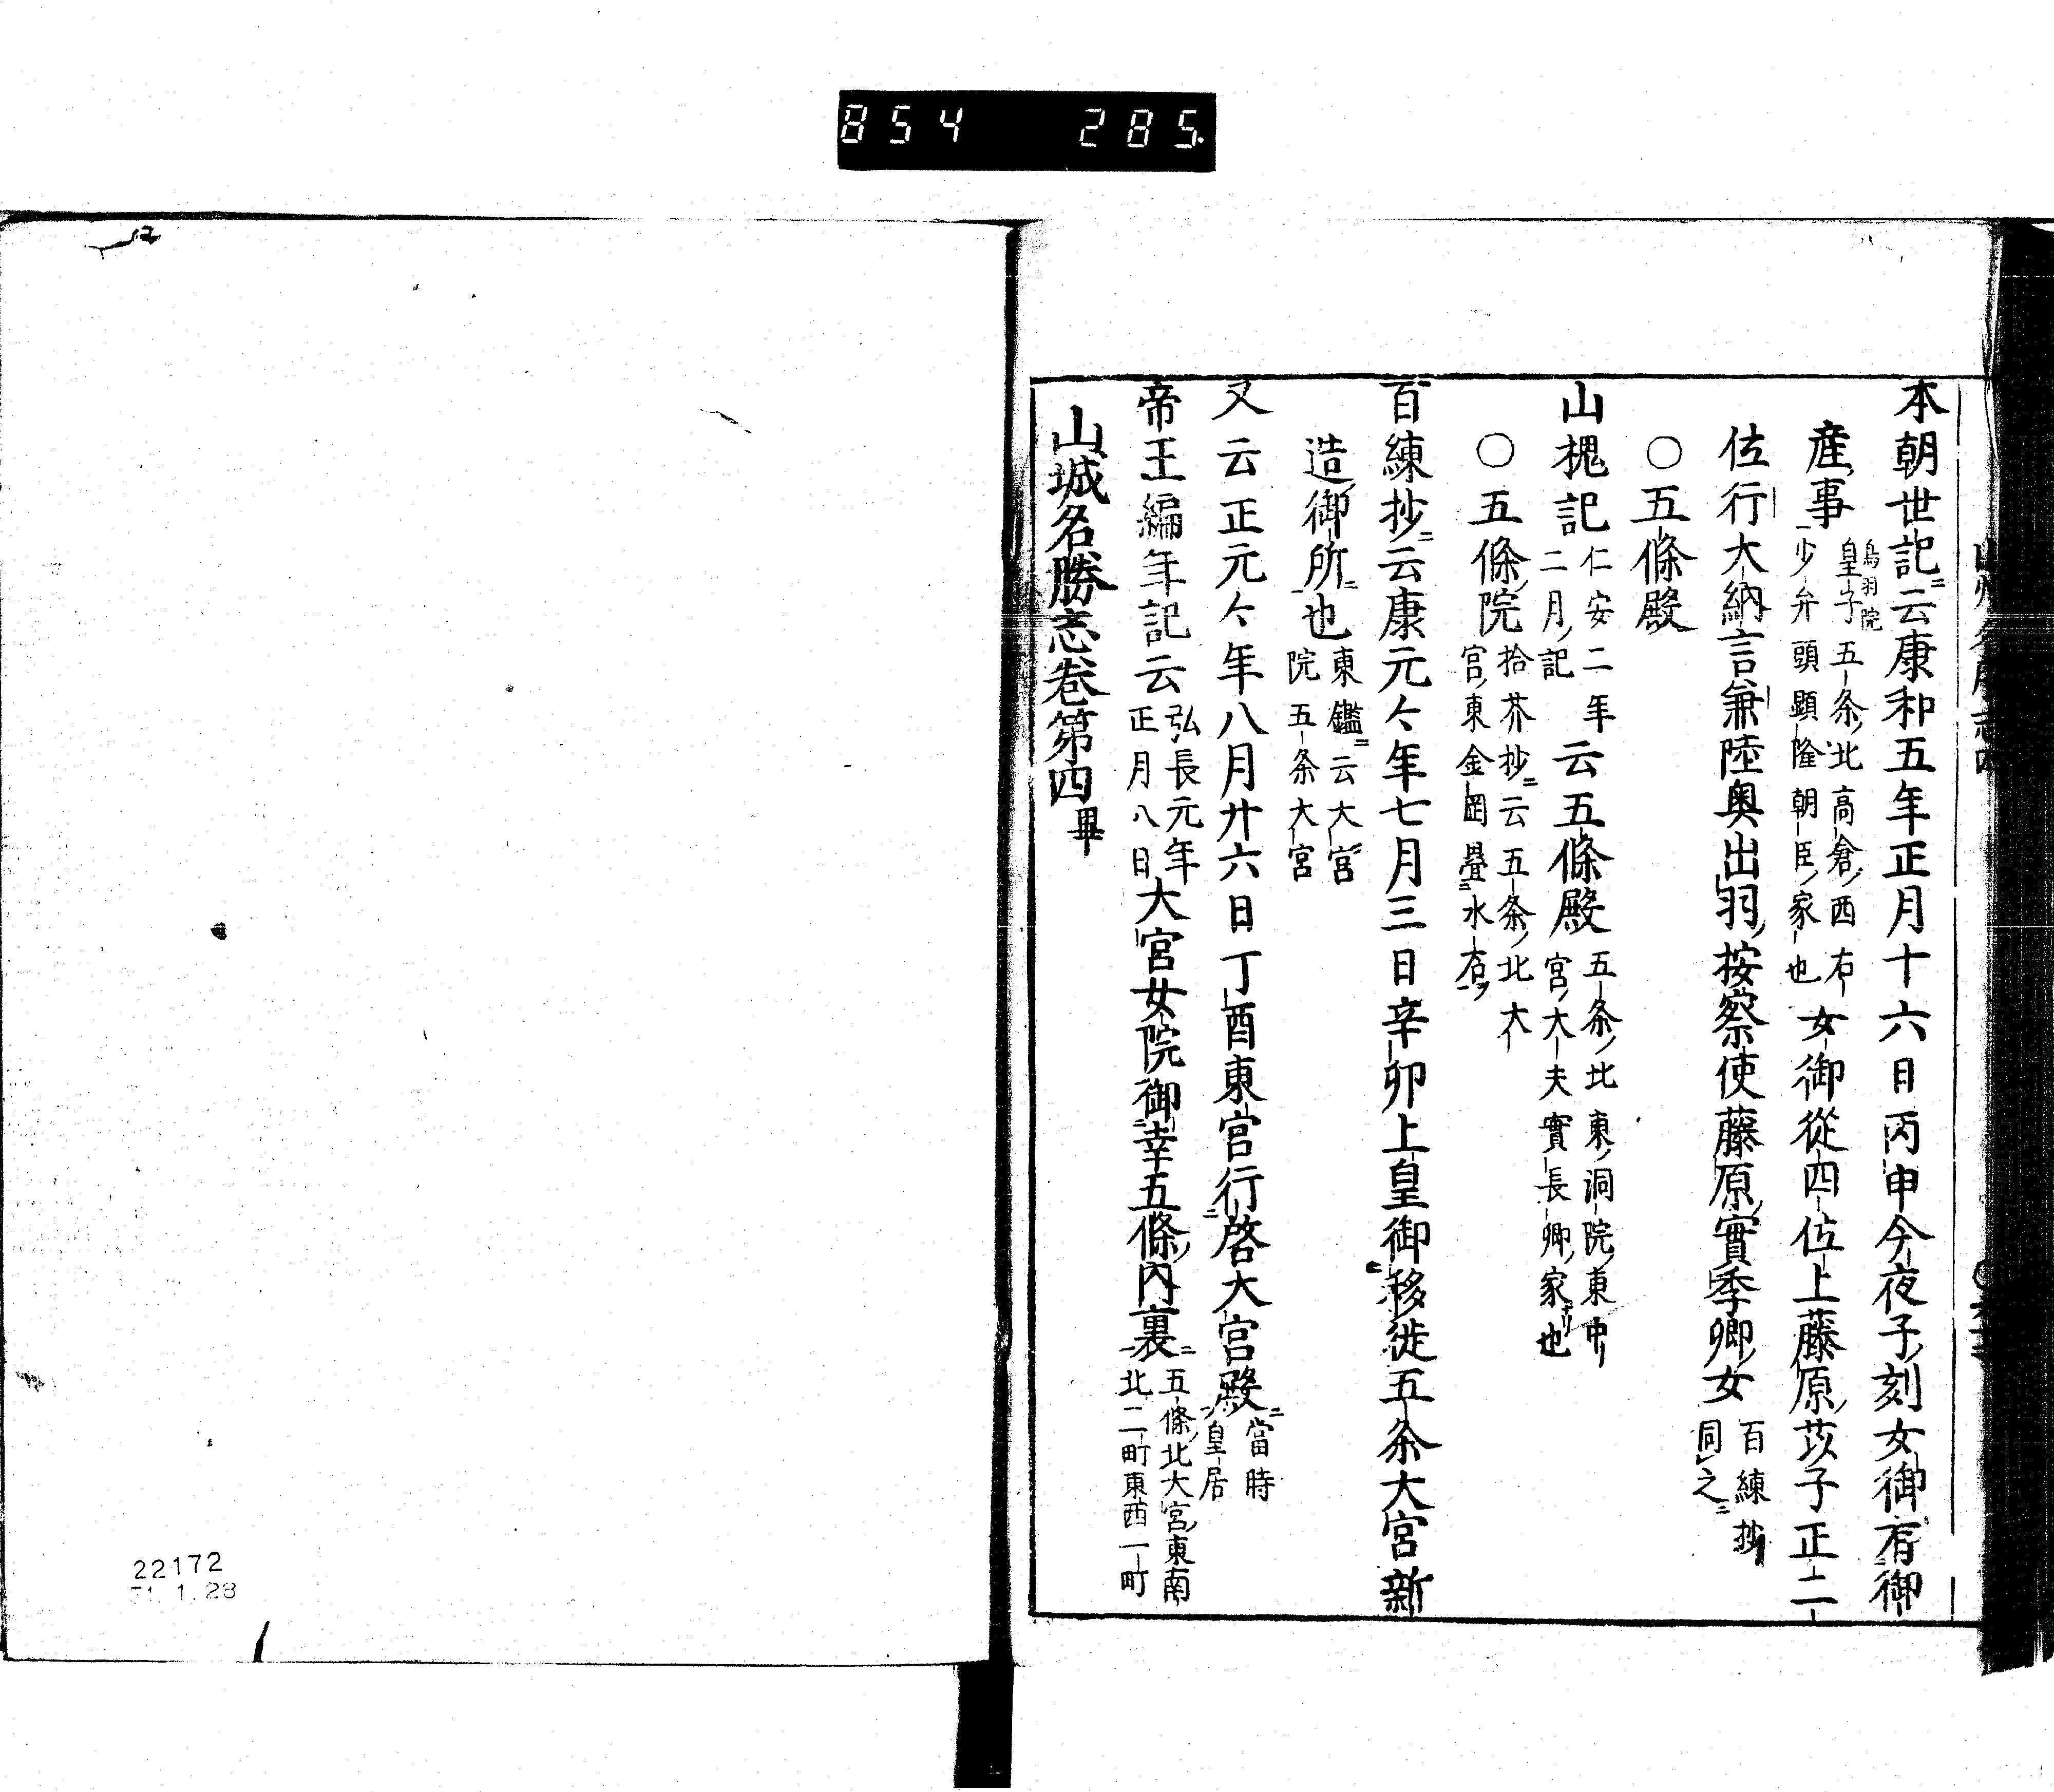 854 285
本朝世記云康和五年正月十六日丙申今夜子刻女御有御
産事 鳥羽院 皇子五条北高倉西右 少弁頭顕隆朝臣家也 女御從四位上藤原苡子正二
位行大納言兼陸奥出羽按察使藤原實季卿女 百練抄 同之
○五條殿
山槐記 仁安二年 二月記 云五條殿 五条北東洞院東中 宮大夫實長卿家也
○五條院 拾芥抄云五条北大 宮東金岡疊水石
百練抄云康元々年七月三日辛卯上皇御移徙五条大宮新
造御所也 東鑑云大宮 院五条大宮
又云正元々年八月廿六日丁酉東宮行啓大宮殿 當時 皇居
帝王編年記云 弘長元年 正月八日 大宮女院御幸五條內裏 五條北大宮東南 北二町東西一町
山城名勝志卷第四畢
22172
1.28